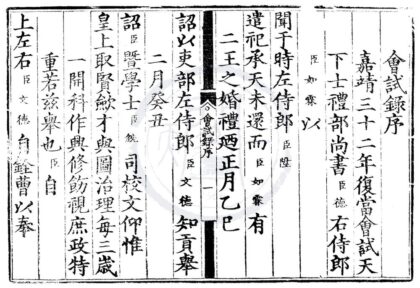 會試錄序
嘉靖三十二年復當會試天
下士禮部尚書臣德右侍郎
臣如霖以
聞于時左侍郎臣陞
遣祀承天未還而臣如霖有
二王之婚禮廼正月乙巳
會試錄序
一
詔以吏部左侍郎臣文德知貢舉
二月癸丑
詔臣曁學士臣統司校文仰惟
皇上取賢歛才與圖治理每三歲
一開科作興修飭視庶政特
重若玆舉也臣自
上左右臣文德自銓曹以奉